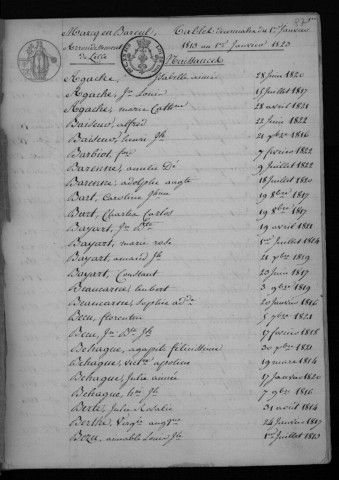 Marcq en Baroeul. Tables décennales du 1er Janvier
Arrondissement de Lille 1813 au 1er Janvier 1823
Naissances
Agache, Isabelle aimée 28 juin 1820
Agache, Jn Louis 15 juillet 1817
Agache, marie Cathne 28 avril 1821
Baisieux, alfred 22 juin 1822
Baisieux, henri Jh 21 7bre 1816
Barbiot, fois 7 février 1822
Baronne, amélie 9 juillet 1822
Baronne, adolphe augte 18 juillet 1820
Bart, Caroline 19 8bre 1817
Bart, Charles Carlos 19 8bre 1817
Bayart, Jn Bte 19 avril 1821
Bayart, marie rose 1er juillet 1814
Bayart, amand Jh 21 9bre 1819
Bayart, Constant 23 juin 1817
Beaucarne, imbert 3 9bre 1819
Beaucarne, Sophie 20 janvier 1816
Becu, florentin 5 7bre 1821
Becu, Jn Bte Jh 17 février 1818
Behague, agapite félicité 30 7bre 1821
Behague, appoline 19 mars 1814
Behague, Julie aimée 17 janvier 1820
Behague, Jh 7 9bre 1816
Berte, Julie Rosalie 31 août 1814
Berthe, Virgie 24 janvier 1817
Bezu, aimable Louis Jh 1er juillet 1813